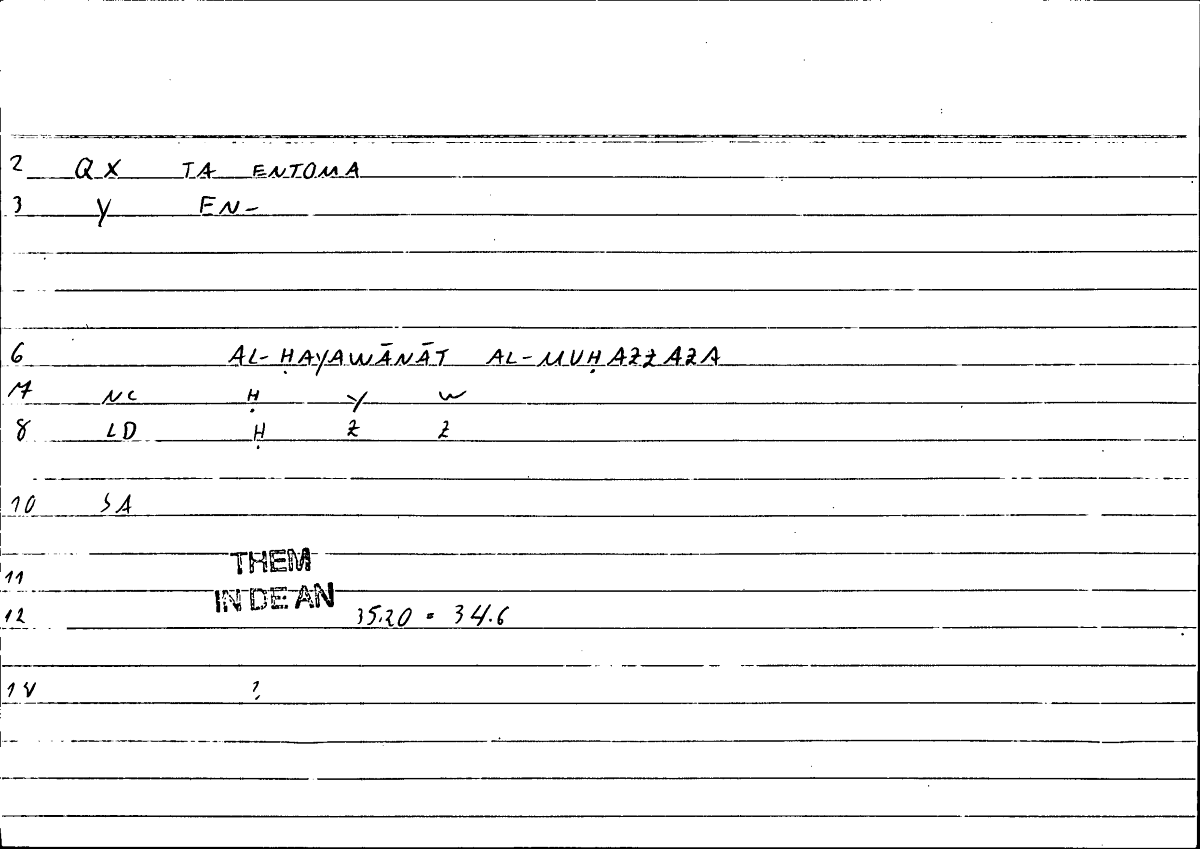 2 QX TA ENTOMA
3 Y EN-
6 AL-ḤAYAWĀNĀT AL-MUḤAZZAZA
7 NC Ḥ Y W
8 LD Ḥ Z Z
10 SA
11 THEM
IN DE AN
12 35.20 = 34.6
14 ?